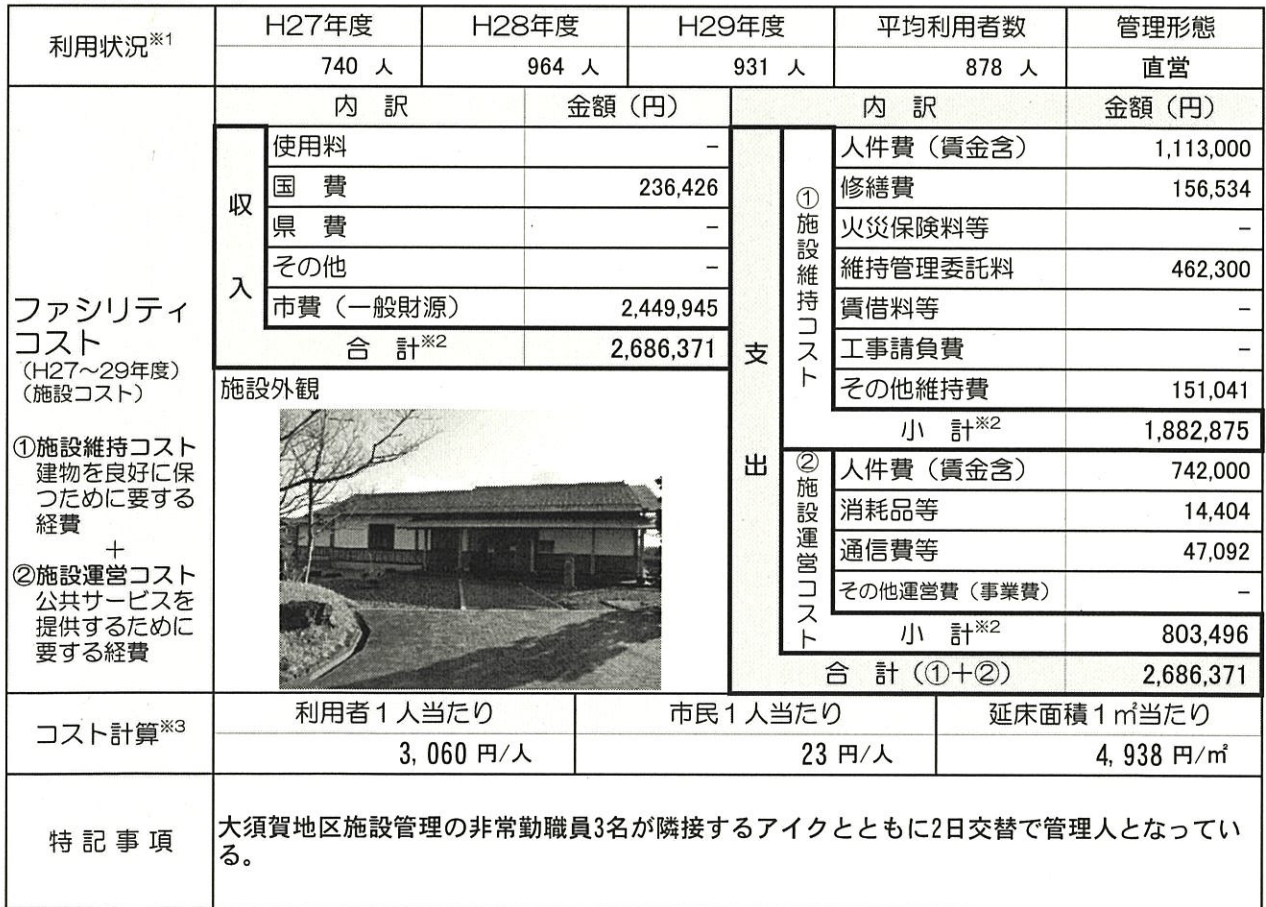 利用状況※1
H27年度 H28年度 H29年度 平均利用者数 管理形態
740 人 964 人 931 人 878 人 直営
ファシリティ
コスト
(H27～29年度)
(施設コスト)
①施設維持コスト
建物を良好に保
つために要する
経費
＋
②施設運営コスト
公共サービスを
提供するために
要する経費
内 訳 金額（円）
収入
使用料 －
国 費 236,426
県 費 －
その他 －
市費（一般財源） 2,449,945
合 計※2 2,686,371
施設外観
内 訳 金額（円）
支出
①施設維持コスト
人件費（賃金含） 1,113,000
修繕費 156,534
火災保険料等 －
維持管理委託料 462,300
賃借料等 －
工事請負費 －
その他維持費 151,041
小 計※2 1,882,875
②施設運営コスト
人件費（賃金含） 742,000
消耗品等 14,404
通信費等 47,092
その他運営費（事業費） －
小 計※2 803,496
合 計（①＋②） 2,686,371
コスト計算※3
利用者１人当たり 市民１人当たり 延床面積１㎡当たり
3,060 円/人 23 円/人 4,938 円/㎡
特記事項
大須賀地区施設管理の非常勤職員3名が隣接するアイクとともに2日交替で管理人となってい
る。